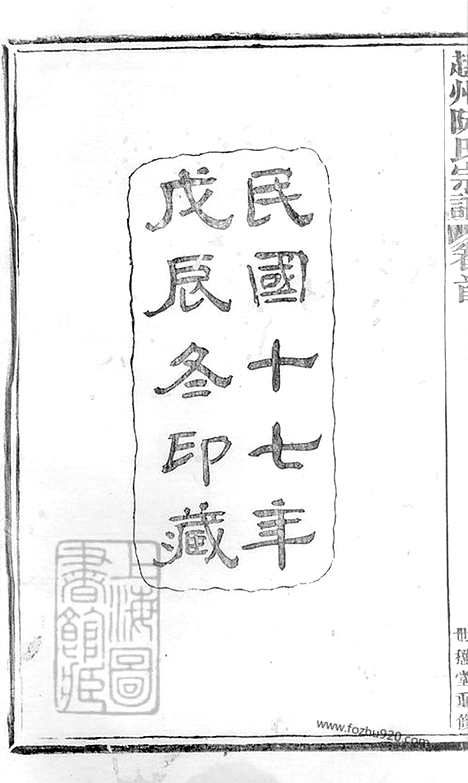 民國十七年
戊辰冬印藏
上海圖
書館藏
www.fozhu920.com